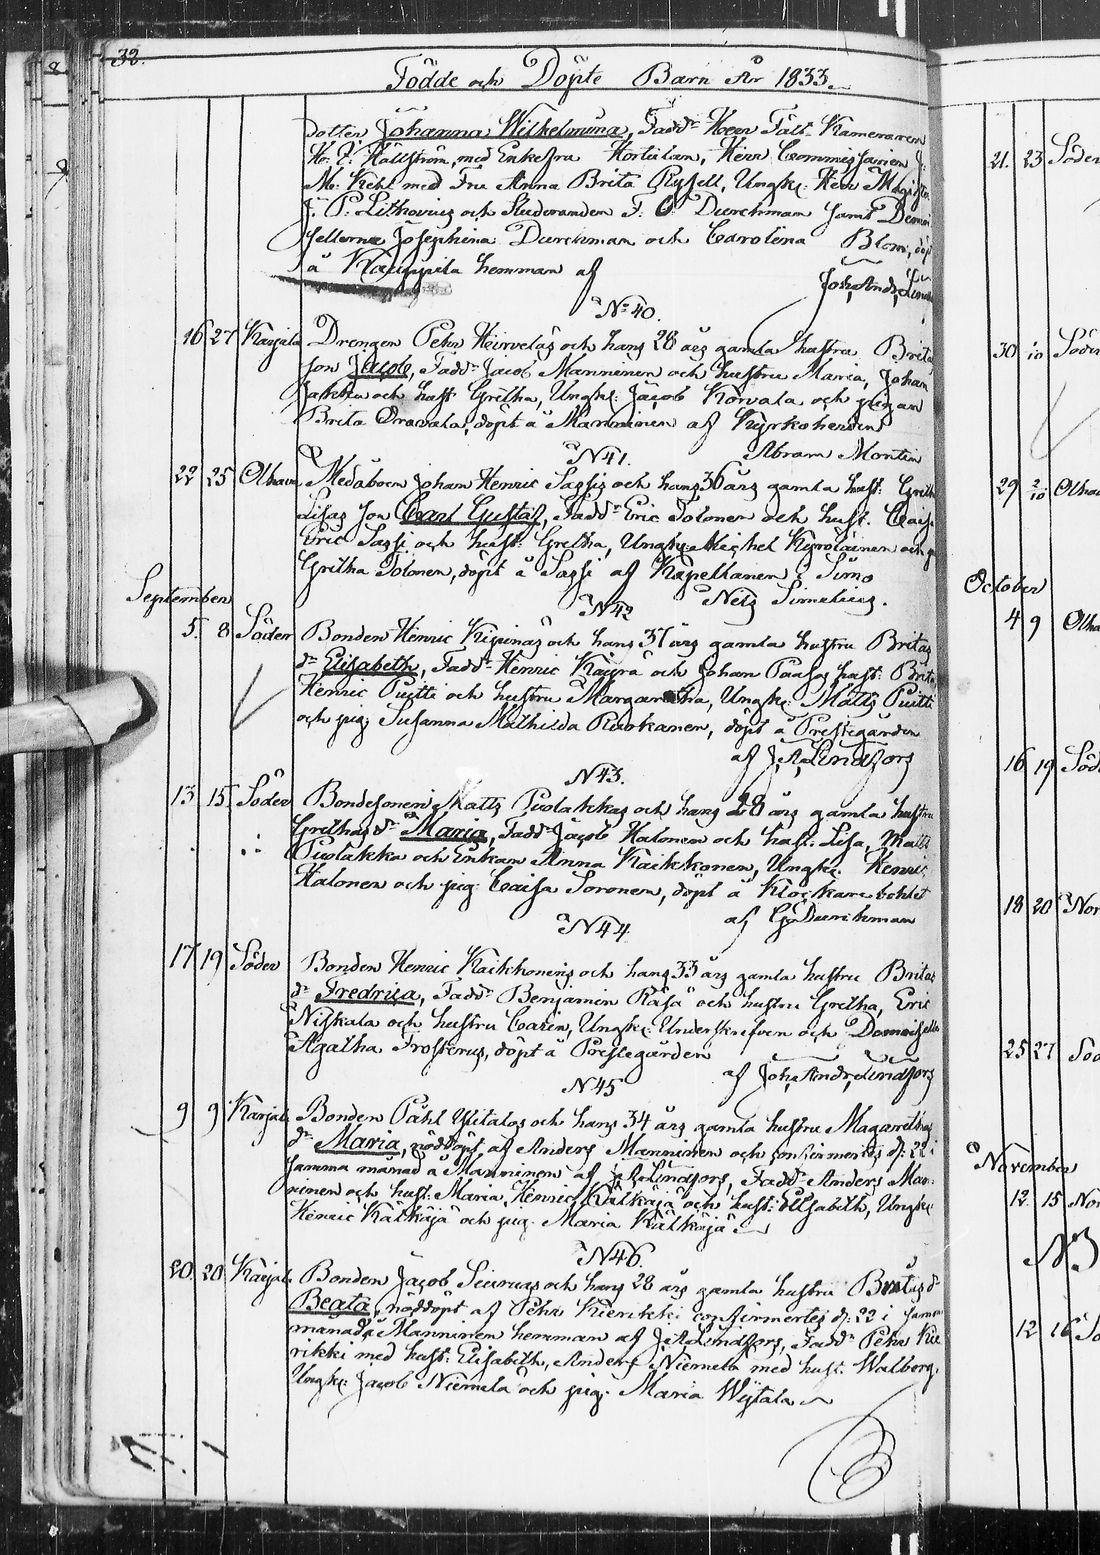 32.
Födde och Döpte Barn År 1833.
dotter Johanna Wilhelmina, Fadd: Herr Fält-Kameraren
H. F. Hällström, med Enkefru Hortulan, Herr Commissarien J:
M: Kehl med Fru Anna Brita Rysell, Ungk: Herr Magister
J. P. Lithovius och Studeranden F. O. Durchman samt Demoi
sellerna Josephina Durchman och Carolina Blom, döpt
å Kauppila hemman af Joh. Andr. Lindfors
N:o 40.
16 27 Karjala Drengen Pehr Heirvelas och hans 28 års gamla hustru Britas
son Jacob, Fadd: Jacob Manninen och hustru Maria, Johan
Jakku och hust: Gretha, Ungk: Jacob Korvala och pigan
Brita Oravala, döpt å Manninen af Kyrkoherden
Abram Montin
N 41.
22 25 Olhava Nedåboen Johan Henric Sassis och hans 36 års gamla hust: Greth
Lisas son Carl Gustaf, Fadd: Eric Tolonen och hust. Caisa
Eric Sassi och hust: Gretha, Ungk: Michel Kyröläinen och p
Gretha Tolonen, döpt å Sassi af Kapellanen i Simo
Nils Simelius.
September
N 42
5. 8 Söder Bonden Henric Kipinas och hans 31 års gamla hustru Britas
dr Elisabeth, Fadd: Henric Kaÿrä och Johan Paasos hust: Brita
Henric Puitti och hustru Margaretha, Ungk: Matts Puitti
och pig: Susanna Mathilda Ruokanen, döpt å Prestegården
af J. A. Lindfors
N 43.
13 15 Söder Bondesonen Matts Puolakkas och hans 28 års gamla hustru
Grethas dr Maria, Fadd: Jacob Halonen och hust: Lisa, Matts
Puolakka och Enkan Anna Kaikkonen, Ungk: Henric
Halonen och pig: Caisa Soronen, döpt å Klockarebohlet
af G. Durchman
N 44
17 19 Söder Bonden Henric Kaikkonens och hans 33 års gamla hustru Britas
dr Fredrica, Fadd: Benjamin Räsä och hustru Gretha, Eric
Niskala och hustru Carin, Ungk: Underskrefven och Demoiselle
Agatha Frosterus, döpt å Prestegården
af Joh. Andr. Lindfors
N 45
9 9 Karjala Bonden Påhl Ylitalos och hans 34 års gamla hustru Magarethas
dr Maria, nöddöpt af Anders Manninen och confirmertes d: 22 i
samma månad å Manninen af J. A. Lindfors, Fadd: Anders Man-
ninen och hust: Maria, Henric Kälkäjä och hust: Elisabeth, Ungk:
Henric Kälkäjä och pig: Maria Kälkäjä
N 46.
20 20 Karjala Bonden Jacob Siuruas och hans 28 års gamla hustru Britas dr
Beata, nöddöpt af Pehr Kierikki confirmertes d: 22 i samma
månad å Manninen hemman af J. A. Lindfors, Fadd: Pehr Kie
rikki med hust: Elisabeth, Anders Niemelä med hust: Walborg,
Ungk: Jacob Niemelä och pig: Maria Wÿtala
21. 23 Söder
30 Söder
29 Olhava
October
4 9 Olha
16 19 Söd
18 20 Nor
25 27 Söd
November
12 15 Nor
12 16 Sö